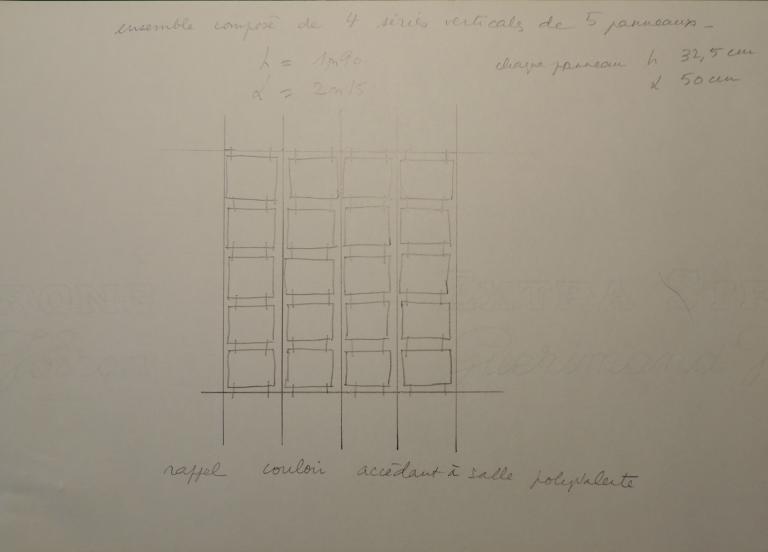 ensemble composé de 4 séries verticales de 5 panneaux -
h = 1m90
chaque panneau h 32,5 cm
l = 2m15
l 50 cm
rappel couloir accédant à salle polyvalente